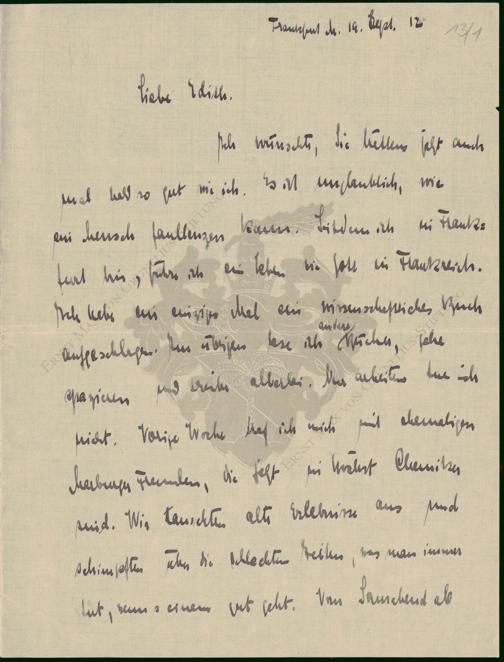 Frankfurt M. 19. Sept. 12
13/1
Liebe Edith.
Ich wünschte, Sie hättens jetzt auch
mal halb so gut wie ich. Es ist unglaublich, wie
ein Mensch faullenzen kann. Seitdem ich in Frank-
furt bin, führe ich ein Leben wie Gott in Frankreich.
Ich habe ein einziges Mal ein wissenschaftliches Buch
aufgeschlagen. Im übrigen lese ich andere Bücher, gehe
spazieren und treibe allerlei. Nur arbeiten tue ich
nicht. Vorige Woche traf ich mich mit ehemaligen
Marburger Freunden, die jetzt in Höchst Chemiker
sind. Wir tauschten alte Erlebnisse aus und
schimpften über die schlechten Zeiten, was man immer
tut, wenns einem gut geht. Von Sonnabend ab